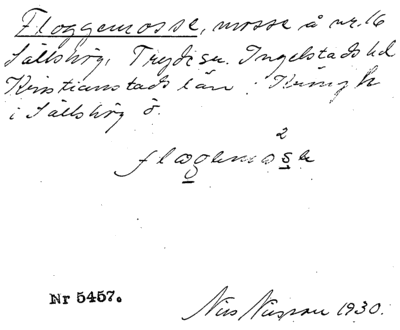 Floggemosse, mosse å nr. 16
Sällshög, Tryde sn. Ingelstads hd
Kristianstads län.
i Sällshög ö.
Nr 5457.
Nils Nilsson 1930.